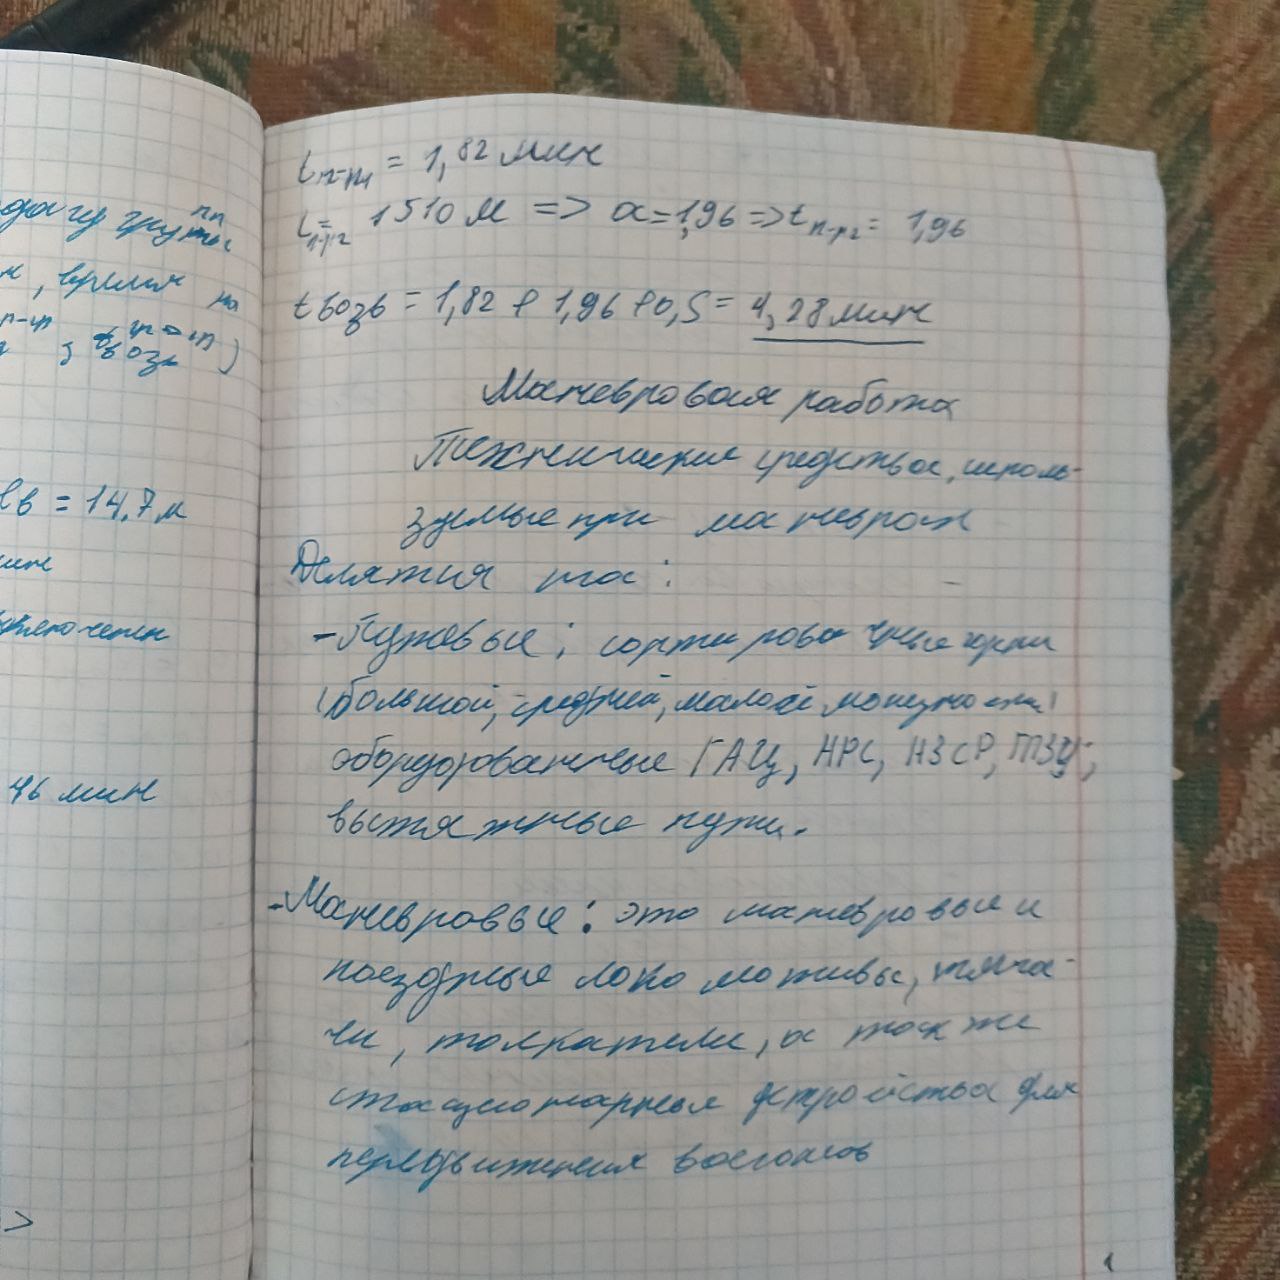 дачу группы
пп
, время на
п-гр гр-п
, tвозв )
lв = 14,7 м
мин
46 мин
>
tп-р1 = 1,82 мин
Lп-р2 = 1510 м => a = 1,96 => tп-р2 = 1,96
tвозв = 1,82 + 1,96 + 0,5 = 4,28 мин
Маневровая работа
Технические средства, исполь-
зуемые при маневрах
Делятся на:
- Путевые; сортировочные горки
(большой, средней, малой мощности)
оборудованные ГАЦ, АРС, АЗСР, ТЗУ;
вытяжные пути.
- Маневровые: это маневровые и
поездные локомотивы, тяга-
чи, толкатели, а также
стационарные устройства для
передвижения вагонов